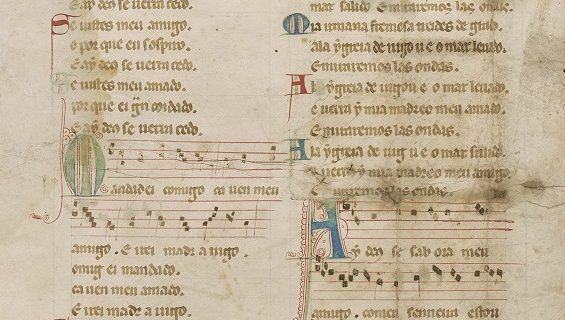 E ay deo se uerra cedo.
Se uistes meu amigo.
o por que eu sospiro.
E ay deo se uerra cedo.
Se uistes meu amado.
por que ei gñ coidado.
E ay deo se uerra cedo.
Mandad ei comigo ca uen meu
amigo. E irei madr a uigo.
comig ei mandado.
ca uen meu amado.
E irei madr a uigo.
mar salido E miraremos las ondas.
Mia irmana fremosa treides de grado.
ala ygreia de uigo u e o mar leuado.
E miraremos las ondas.
Ala ygreia de uigo u e o mar leuado.
e uerra y mia madre o meu amado.
E miraremos las ondas.
Ala ygreia de uig u e o mar salido.
e uerra y mia madre o meu amigo.
E miraremos las ondas.
Ay deo se sab ora meu
amigo. como senneira estou